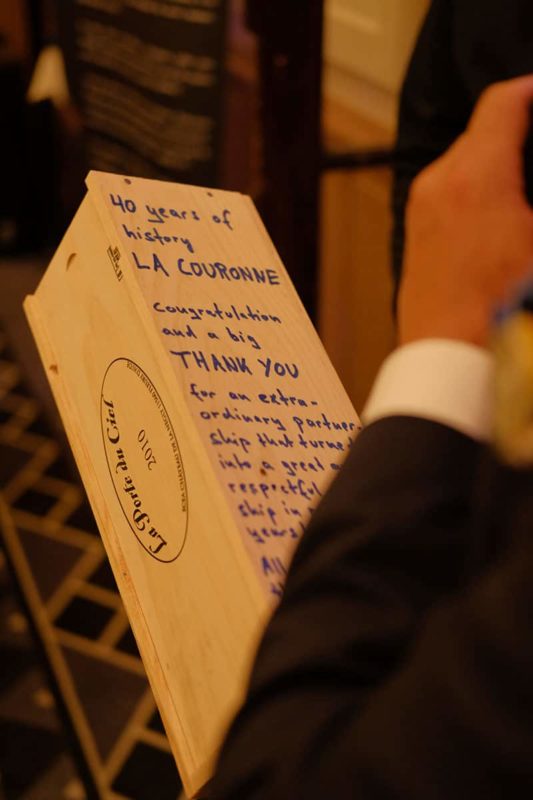 40 years of
history
LA COURONNE
congratulation
and a big
THANK YOU
for an extra-
ordinary partner-
ship that turned
into a great
respectful
ship in
years
All
La Porte du Ciel
2010